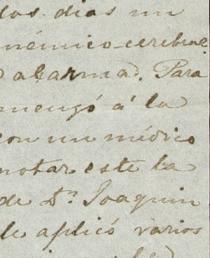 dos dias un
anémico-cerebral
alarmad. Para
menzó á la
con un médico
notar este la
de Sn. Joaquin
le aplicó varios